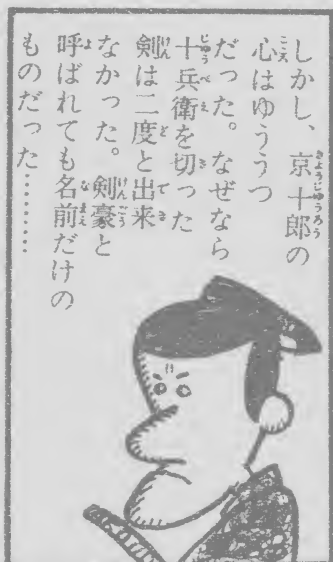 しかし、京十郎の
心はゆううつ
だった。なぜなら
十兵衛を切った
剣は二度と出来
なかった。剣豪と
呼ばれても名前だけの
ものだった………